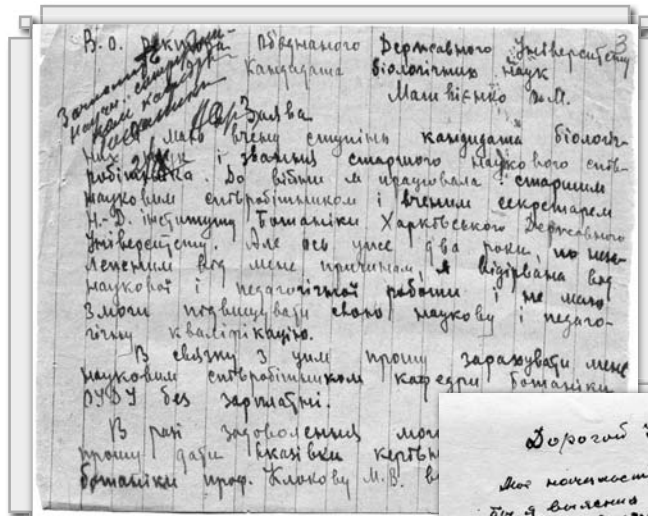 3
В. о. Ректора Об'єднаного Державного Університету
Кандидата біологічних наук
Матвієнко О.М.
Зачислить
научн. сотрудни-
ком кафедры
ботаники
Заява
маю вчену ступінь кандидата біологіч-
них наук і звання старшого наукового спів-
робітника. До війни я працювала старшим
науковим співробітником і вченим секретарем
Н.-Д. інституту Ботаніки Харківського Державного
Університету. Але ось уже два роки, по неза-
лежним від мене причинам, я відірвана від
наукової і педагогічної роботи і не маю
змоги підвищувати свою наукову і педаго-
гічну кваліфікацію.
В связку з цим прошу зарахувати мене
науковим співробітником кафедри ботаніки
ОУДУ без зарплатні.
В разі задоволення
прошу дати вказівки
ботаніки проф. Клокову М.В.
Дорогой
бы я выяснил